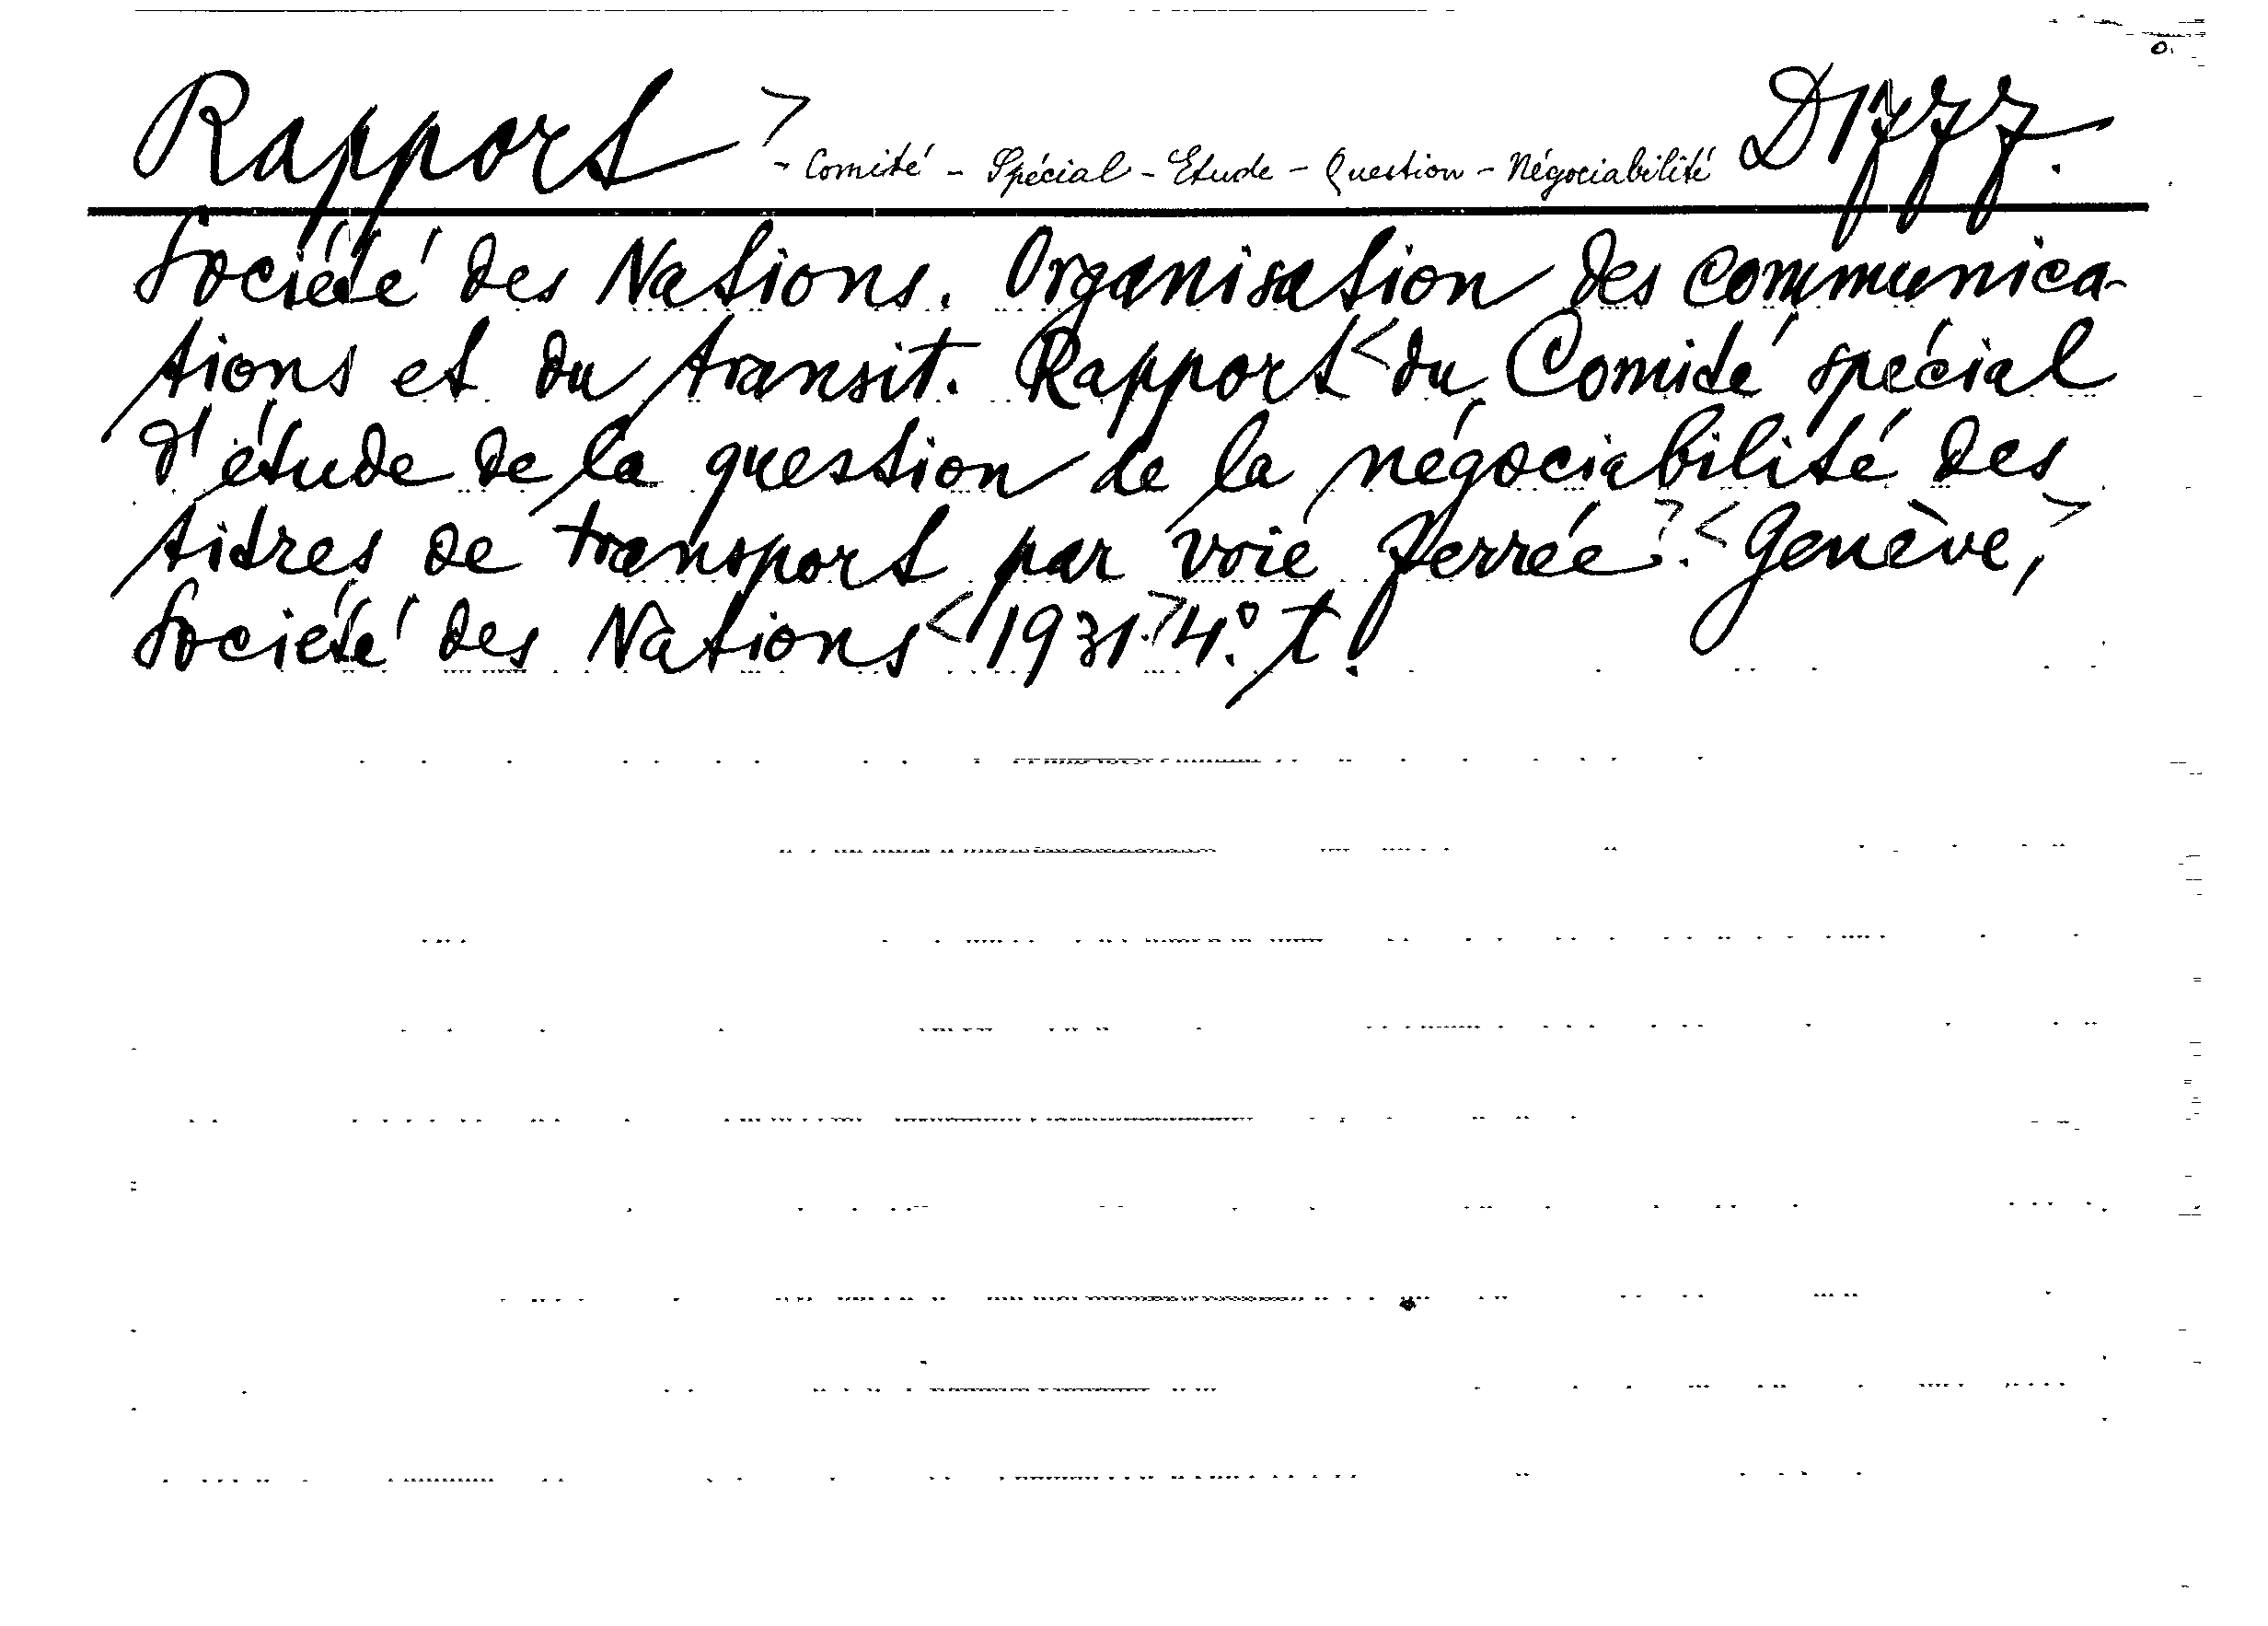 Rapport > - Comité - Spécial - Etude - Question - Négociabilité D1777.
Société des Nations. Organisation des communica-
tions et du transit. Rapport < du Comité spécial
d'étude de la question de la négociabilité des
titres de transport par voie ferrée >. < Genève, >
Société des Nations < 1931. > 4.° t.